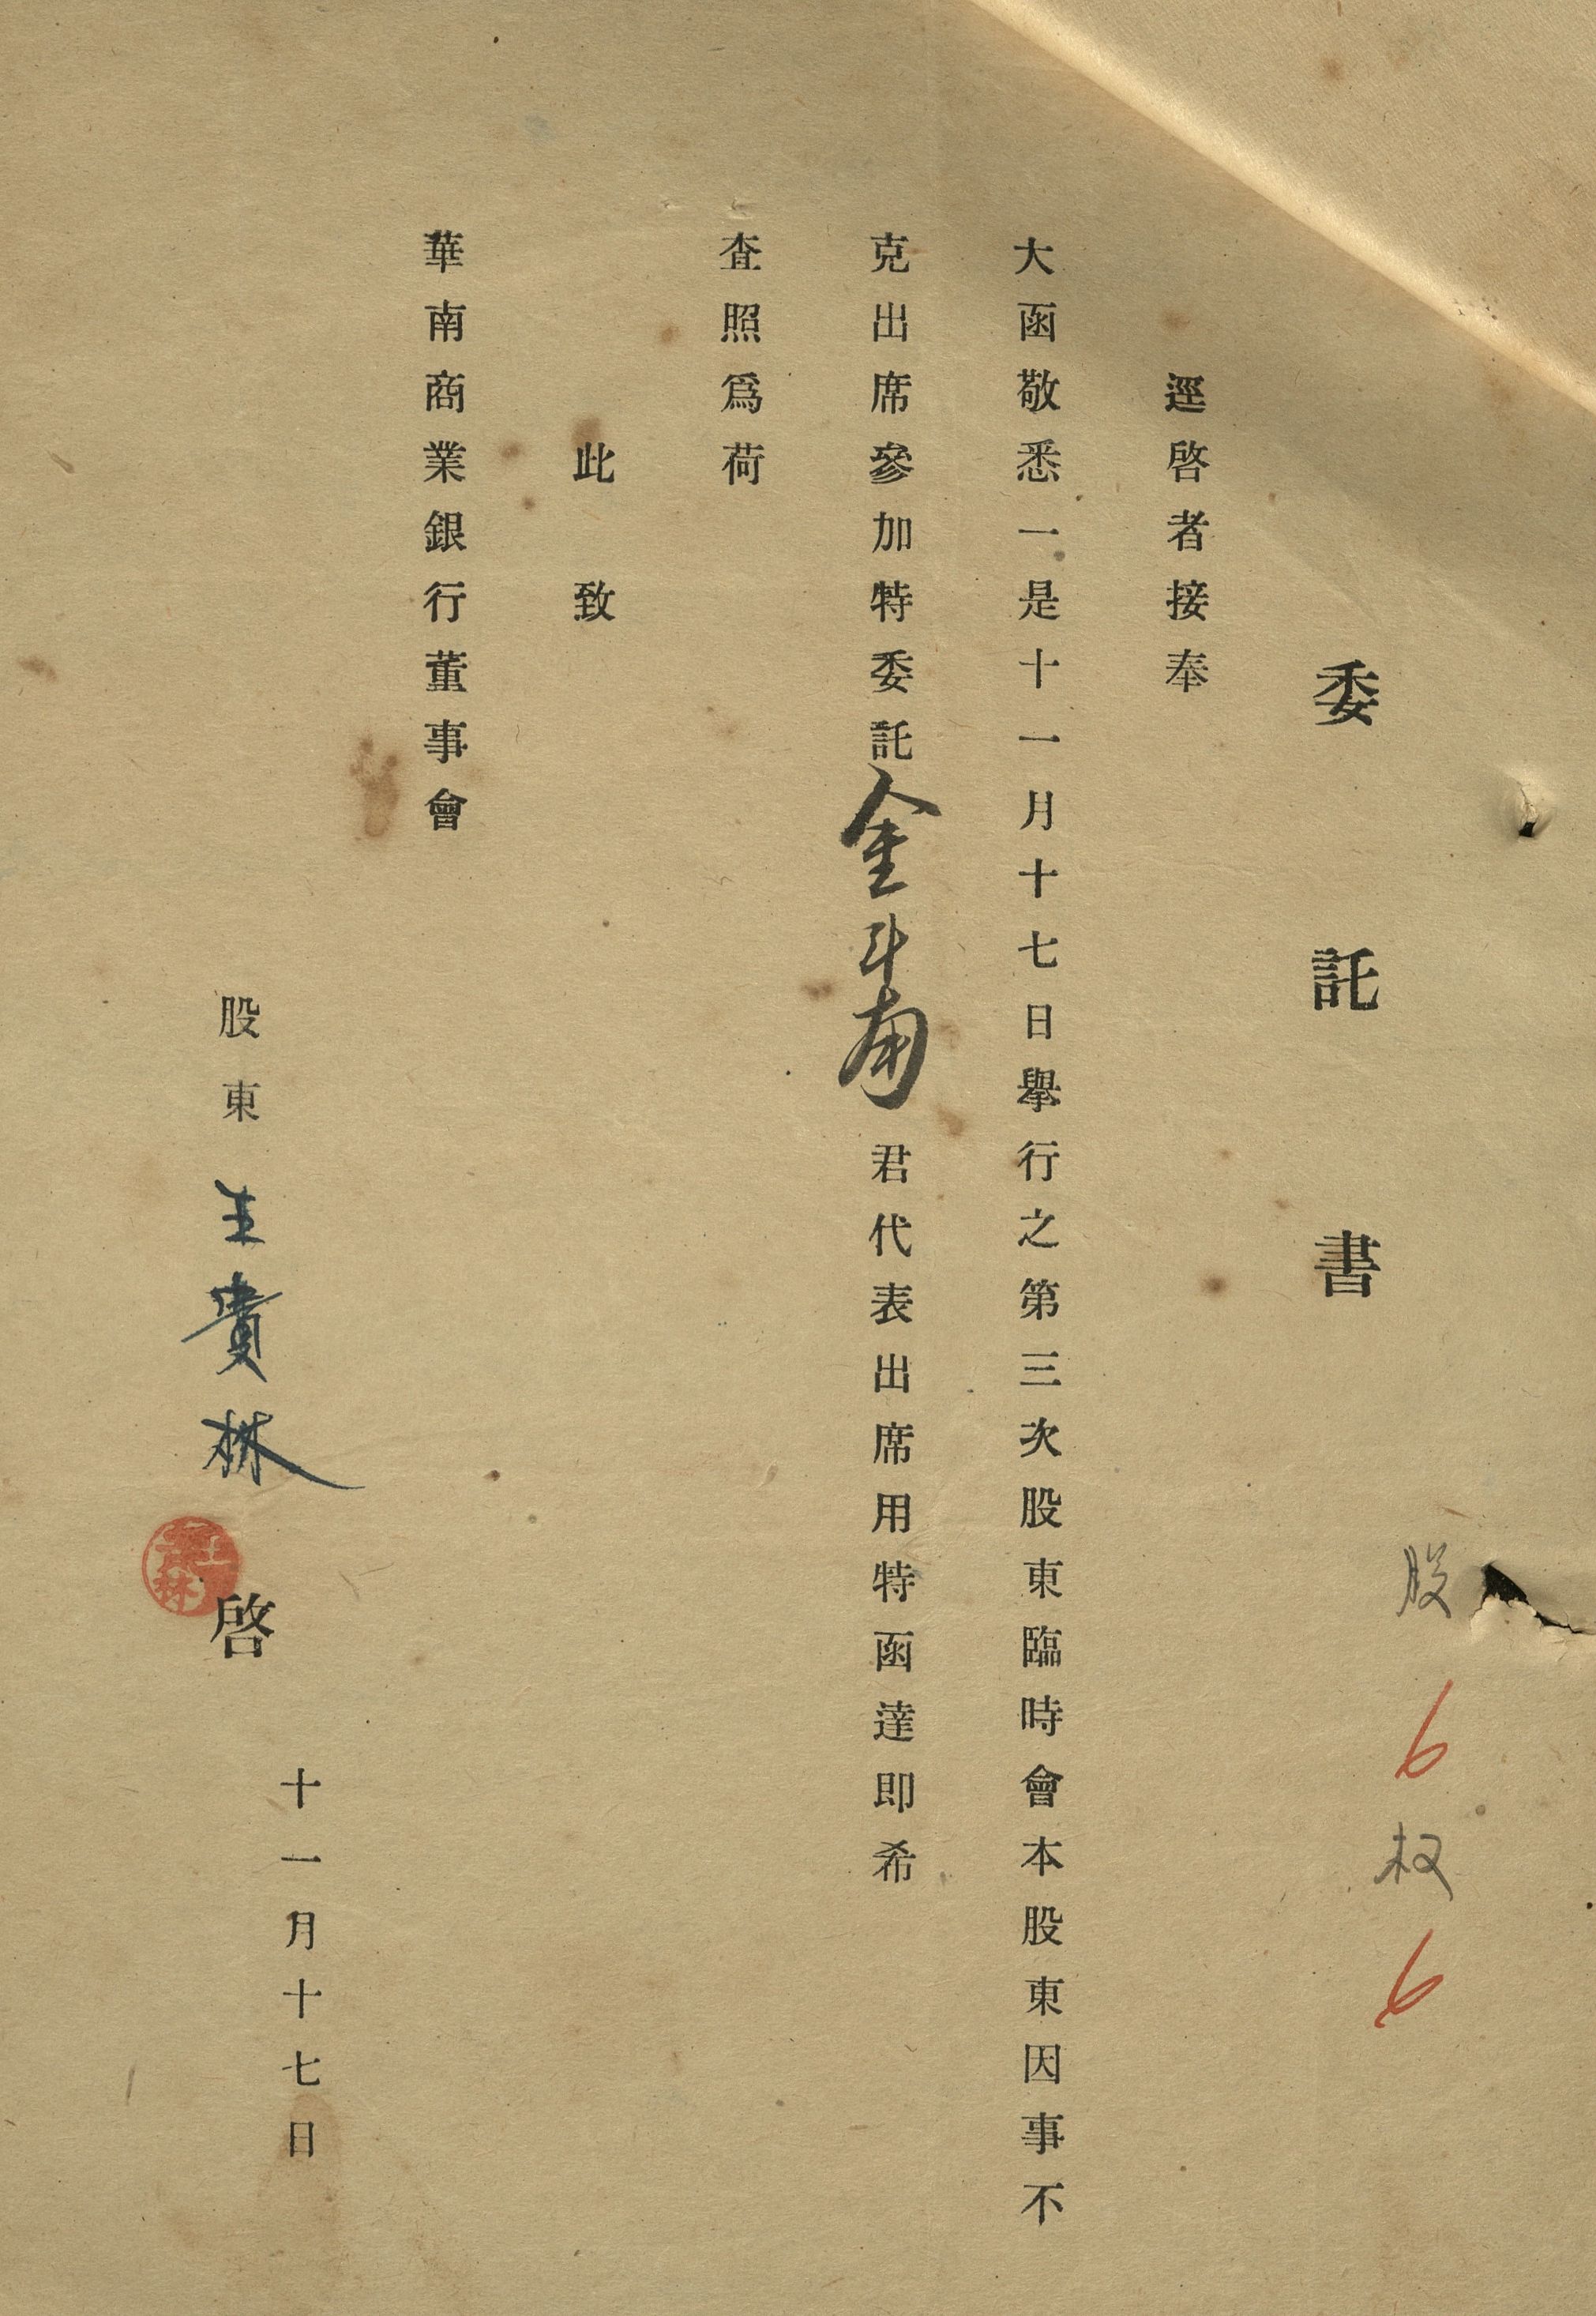 委託書
股 6 权 6
逕啓者接奉
大函敬悉一是十一月十七日舉行之第三次股東臨時會本股東因事不
克出席參加特委託金斗南君代表出席用特函達即希
查照爲荷
此致
華南商業銀行董事會
十一月十七日
股東 王貴林 啓